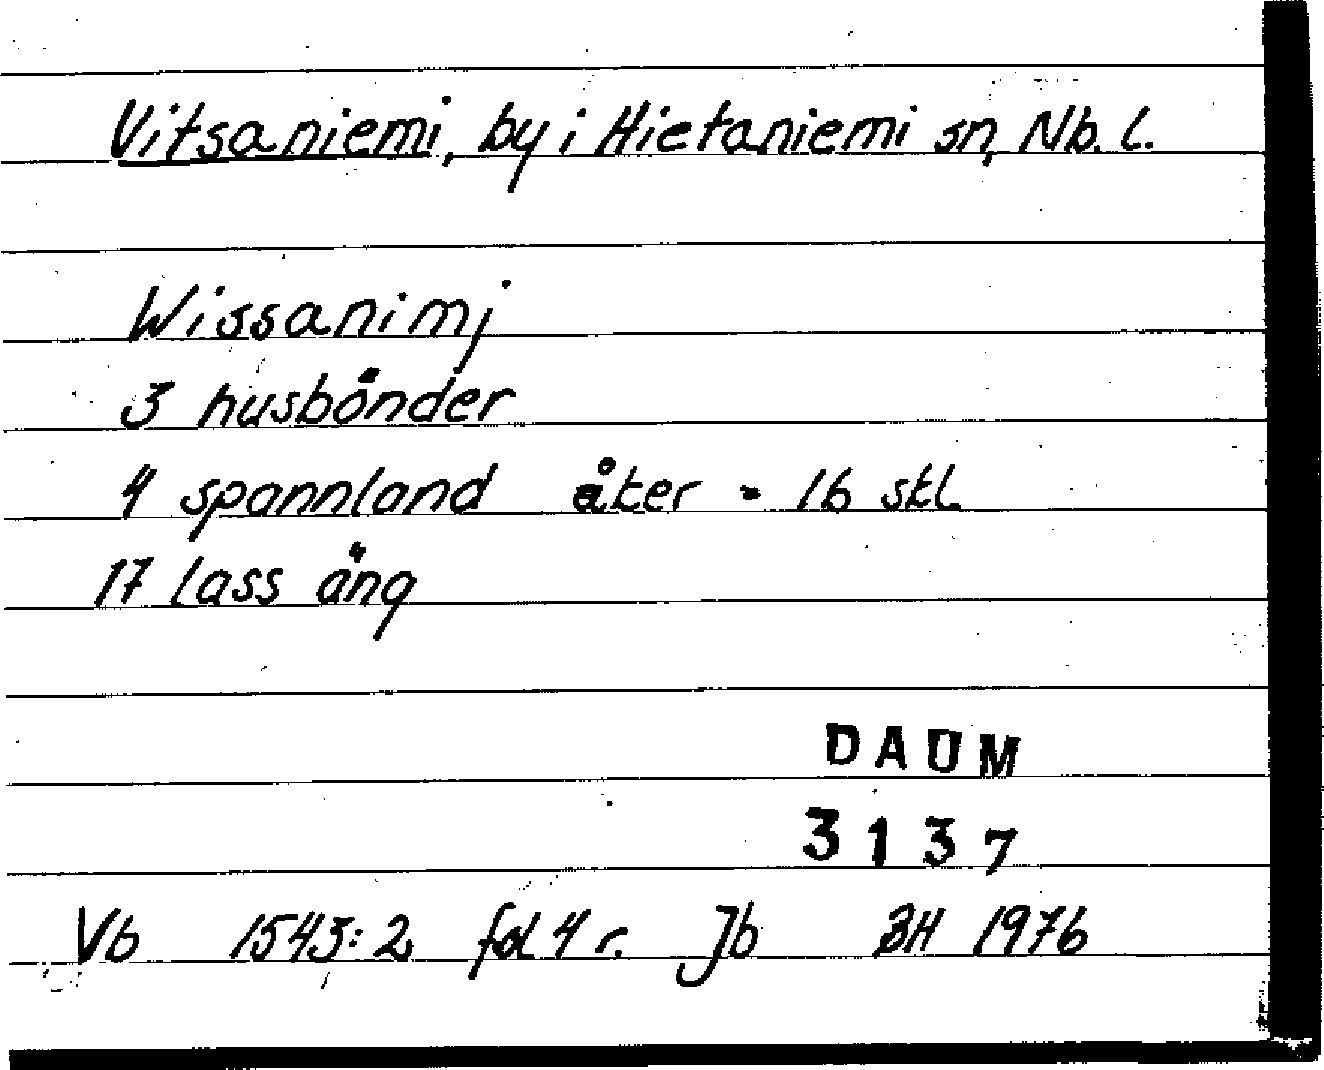 Vitsaniemi, by i Hietaniemi sn, Nb. l.
Wissanimj
3 husbönder
4 spannland åker = 16 skl
17 lass äng
DAUM
3137
Vb 1543:2 fol 4 r. Jb BH 1976